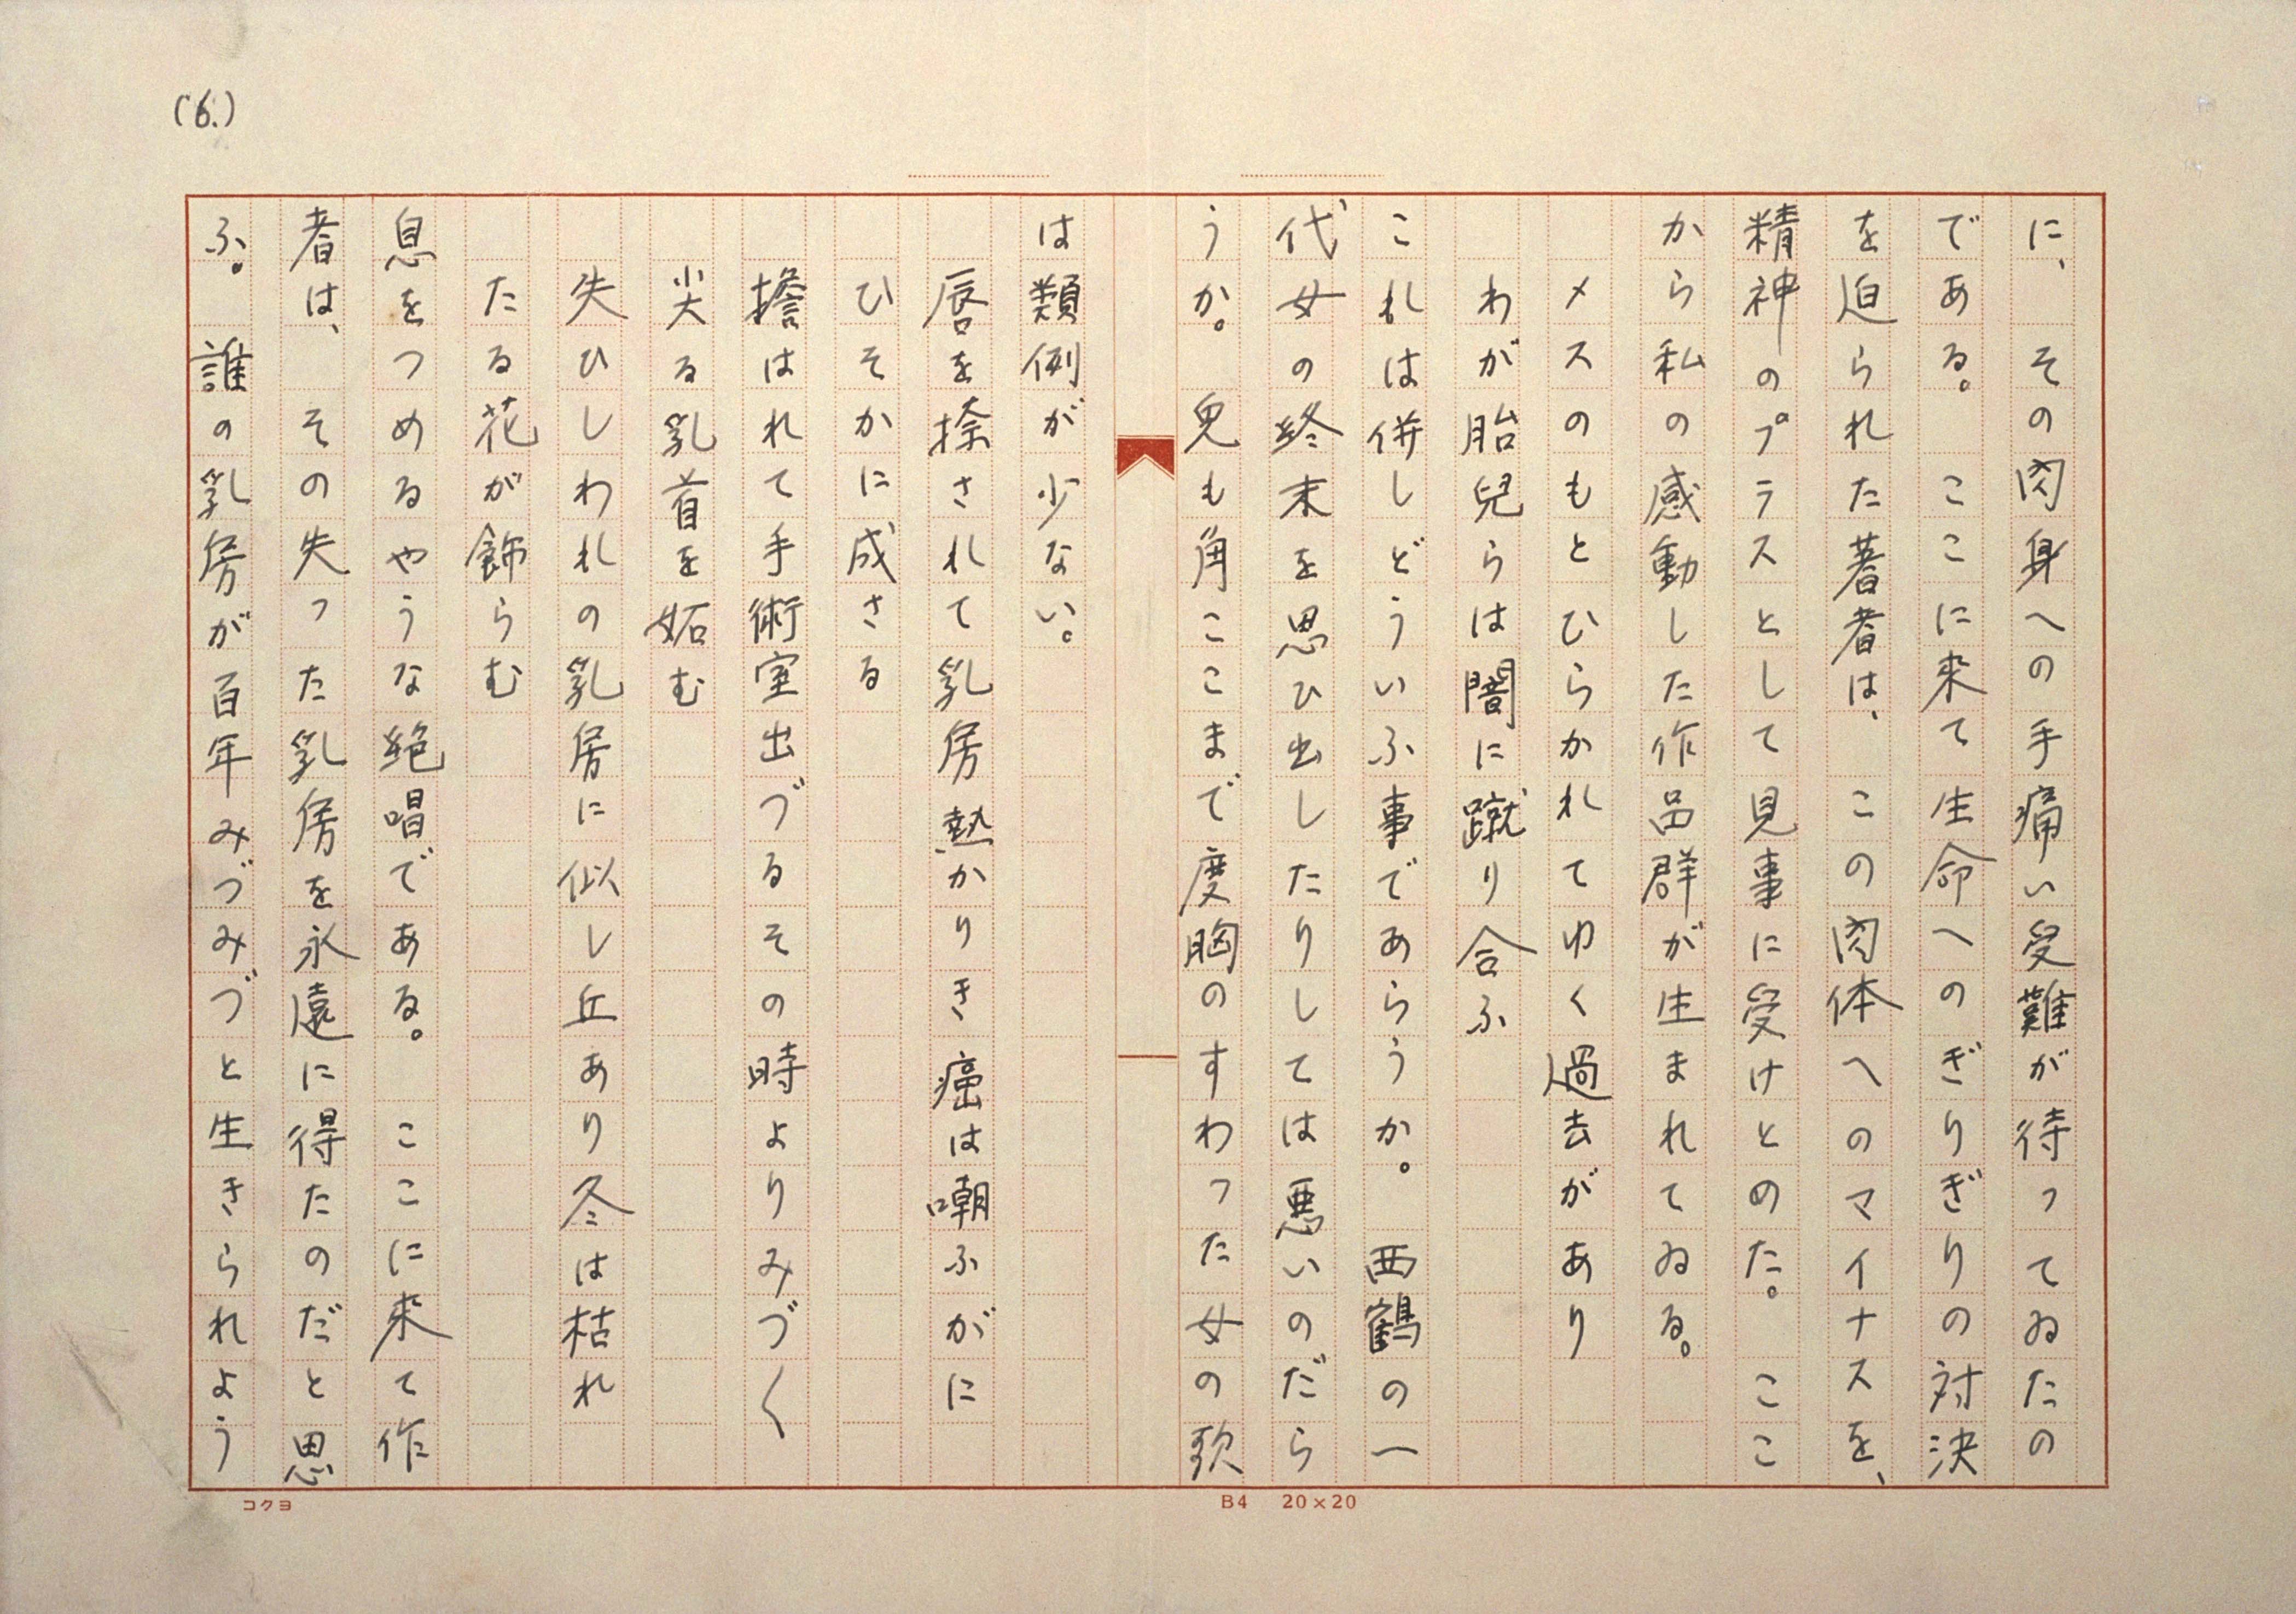 (6.)
に、その肉身への手痛い受難が待ってゐたの
である。ここに来て生命へのぎりぎりの対決
を迫られた著者は、この肉体へのマイナスを、
精神のプラスとして見事に受けとめた。ここ
から私の感動した作品群が生まれてゐる。
メスのもとひらかれてゆく過去があり
わが胎兒らは闇に蹴り合ふ
これは併しどういふ事であらうか。西鶴の一
代女の終末を思ひ出したりしては悪いのだら
うか。兎も角ここまで度胸のすわった女の歌
は類例が少ない。
唇を捺されて乳房熱かりき癌は嘲ふがに
ひそかに成さる
擔はれて手術室出づるその時よりみづく
尖る乳首を妬む
失ひしわれの乳房に似し丘あり冬は枯れ
たる花が飾らむ
息をつめるやうな絶唱である。ここに来て作
者は、その失った乳房を永遠に得たのだと思
ふ。誰の乳房が百年みづみづと生きられよう
コクヨ
B4 20×20